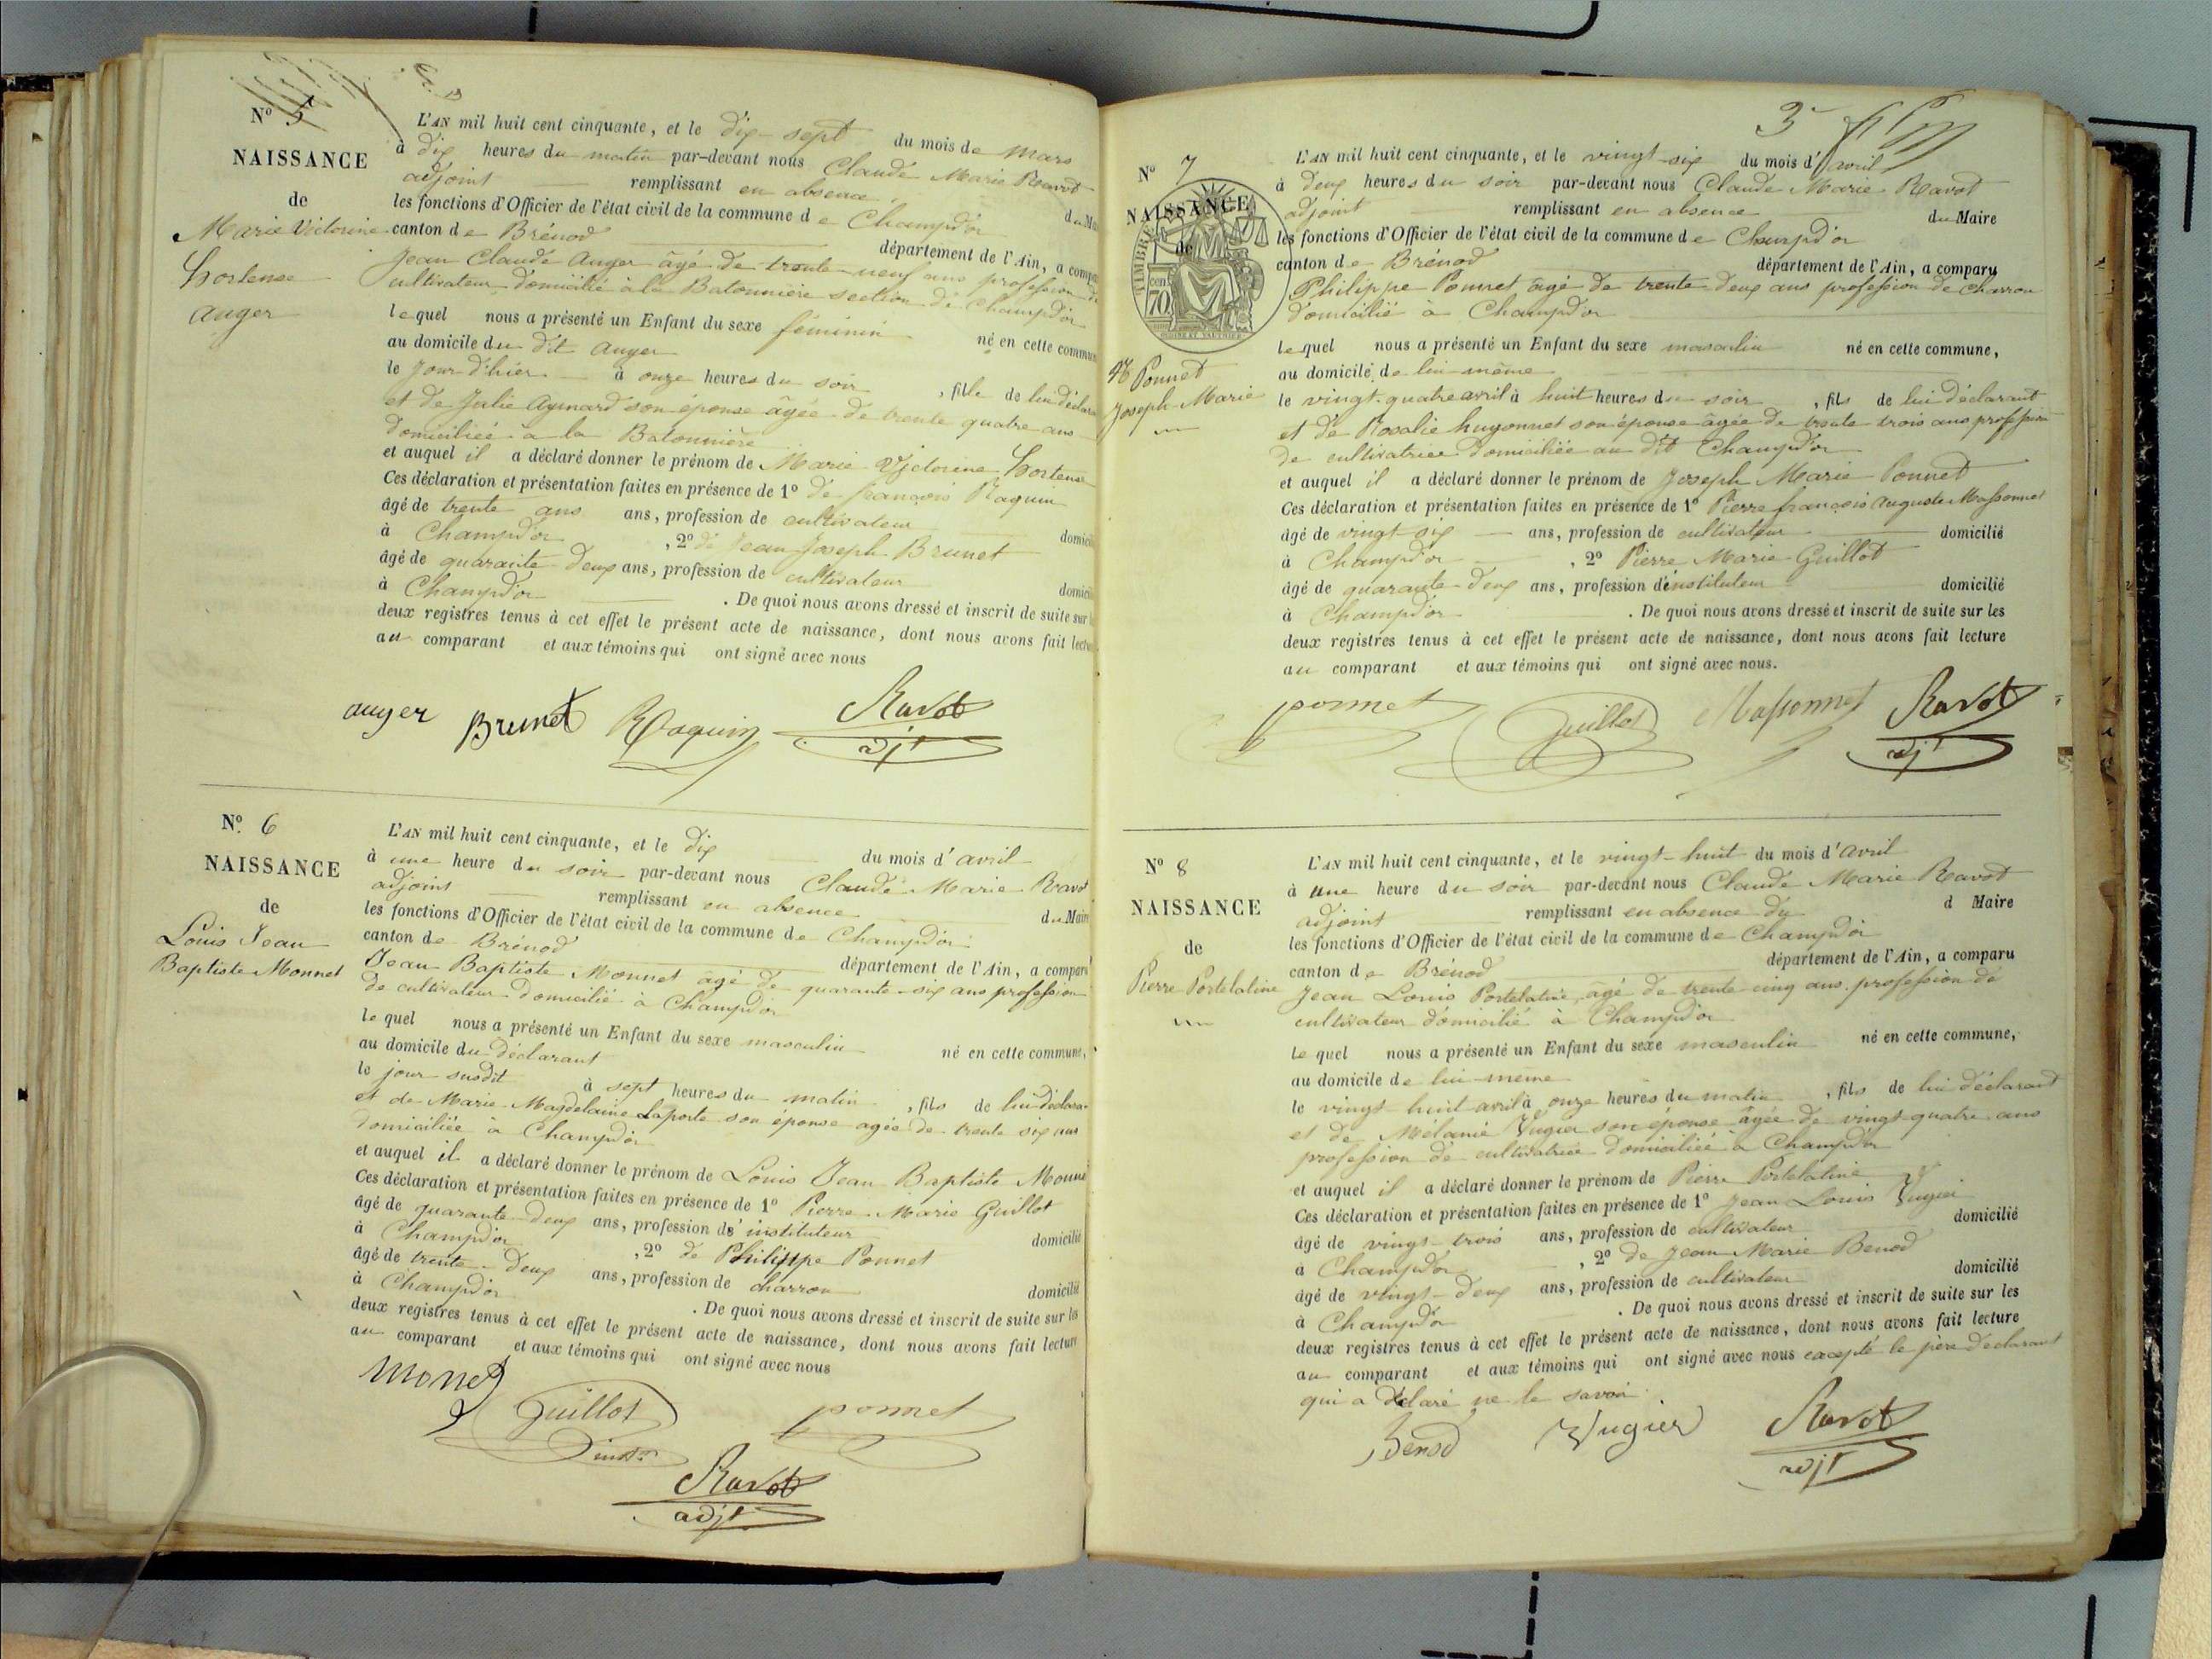 Nº 5
NAISSANCE
de
Marie Victorine
hortense
auger
L'AN mil huit cent cinquante, et le dix-sept du mois de mars
à dix heures du matin par-devant nous Claude Marie Ravot
adjoint remplissant en absence du Ma
les fonctions d'Officier de l'état civil de la commune de Champd'or
canton de Brénod département de l'Ain, a compa
Jean Claude auger âgé de trente-neuf ans profession de
cultivateur domicilié à la Batonnière section de Champd'or
lequel nous a présenté un Enfant du sexe féminin né en cette commun
au domicile du dit auger
le jour d'hier à onze heures du soir, fille de lui déclara
et de Julie Aymard son épouse âgée de trente quatre ans
domiciliée à la Batonnière
et auquel il a déclaré donner le prénom de Marie Victorine hortense
Ces déclaration et présentation faites en présence de 1º de françois Raquin
âgé de trente ans ans, profession de cultivateur domici
à Champd'or, 2º de Jean Joseph Brunet
âgé de quarante deux ans, profession de cultivateur domici
à Champd'or. De quoi nous avons dressé et inscrit de suite sur l
deux registres tenus à cet effet le présent acte de naissance, dont nous avons fait lectu
au comparant et aux témoins qui ont signé avec nous
auger Brunet Raquin Ravot
adjt
Nº 6
NAISSANCE
de
Louis Jean
Baptiste Monnet
L'AN mil huit cent cinquante, et le dix du mois d'avril
à une heure du soir par-devant nous Claude Marie Ravot
adjoint remplissant en absence du Maire
les fonctions d'Officier de l'état civil de la commune de Champd'or
canton de Brénod département de l'Ain, a comparu
Jean Baptiste Monnet âgé de quarante-six ans profession
de cultivateur domicilié à Champd'or
lequel nous a présenté un Enfant du sexe masculin né en cette commune,
au domicile du déclarant
le jour susdit à sept heures du matin, fils de lui déclara
et de Marie Magdelaine Laporte son épouse agée de trente six ans
domiciliée à Champd'or
et auquel il a déclaré donner le prénom de Louis Jean Baptiste Monne
Ces déclaration et présentation faites en présence de 1º Pierre Marie Guillot
âgé de quarante-deux ans, profession d'instituteur domicilié
à Champd'or, 2º de Philippe Ponnet
âgé de trente-deux ans, profession de charron domicilié
à Champd'or. De quoi nous avons dressé et inscrit de suite sur les
deux registres tenus à cet effet le présent acte de naissance, dont nous avons fait lecture
au comparant et aux témoins qui ont signé avec nous
monet Guillot ponnet
instr
Ravot
adjt
3
Nº 7
NAISSANCE
de
TIMBRE
70
Ponnet
Joseph-Marie
L'AN mil huit cent cinquante, et le vingt-six du mois d'avril
à deux heures du soir par-devant nous Claude Marie Ravot
adjoint remplissant en absence du Maire
les fonctions d'Officier de l'état civil de la commune de Champd'or
canton de Brénod département de l'Ain, a comparu
Philippe Ponnet âgé de trente deux ans profession de charron
domicilié à Champd'or
lequel nous a présenté un Enfant du sexe masculin né en cette commune,
au domicile de lui-même
le vingt-quatre avril à huit heures du soir, fils de lui déclarant
et de Rosalie huyonnet son épouse âgée de trente trois ans profession
de cultivatrice domiciliée au dit Champd'or
et auquel il a déclaré donner le prénom de Joseph Marie Ponnet
Ces déclaration et présentation faites en présence de 1º Pierre françois auguste Massonnet
âgé de vingt six ans, profession de cultivateur domicilié
à Champd'or, 2º Pierre Marie Guillot
âgé de quarante-deux ans, profession d'instituteur domicilié
à Champd'or. De quoi nous avons dressé et inscrit de suite sur les
deux registres tenus à cet effet le présent acte de naissance, dont nous avons fait lecture
au comparant et aux témoins qui ont signé avec nous.
ponnet Guillot Massonnet Ravot
adjt
Nº 8
NAISSANCE
de
Pierre Portelatine
L'AN mil huit cent cinquante, et le vingt-huit du mois d'avril
à une heure du soir par-devant nous Claude Marie Ravot
adjoint remplissant en absence du d Maire
les fonctions d'Officier de l'état civil de la commune de Champd'or
canton de Brénod département de l'Ain, a comparu
Jean Louis Portelatine, âgé de trente-cinq ans. profession de
cultivateur domicilié à Champd'or
lequel nous a présenté un Enfant du sexe masculin né en cette commune,
au domicile de lui-même
le vingt-huit avril à onze heures du matin, fils de lui déclarant
et de Mélanie Vugier son épouse âgée de vingt-quatre ans
profession de cultivatrice domiciliée à Champd'or
et auquel il a déclaré donner le prénom de Pierre Portelatine
Ces déclaration et présentation faites en présence de 1º Jean Louis Vugier
âgé de vingt-trois ans, profession de cultivateur domicilié
à Champd'or, 2º de Jean Marie Benod
âgé de vingt-deux ans, profession de cultivateur domicilié
à Champd'or. De quoi nous avons dressé et inscrit de suite sur les
deux registres tenus à cet effet le présent acte de naissance, dont nous avons fait lecture
au comparant et aux témoins qui ont signé avec nous excepté le père déclarant
qui a déclaré ne le savoir.
Benod Vugier Ravot
adjt